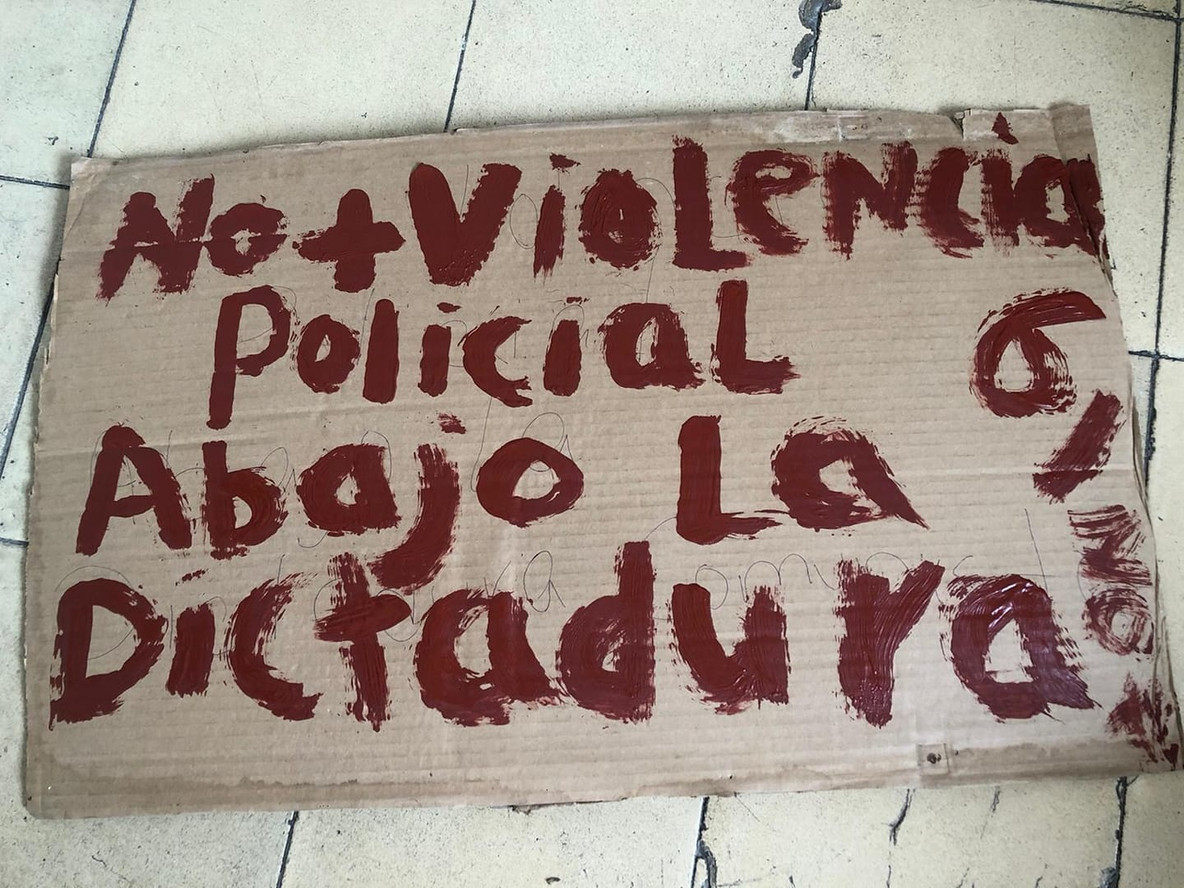 No + VioLencia
PoliciaL
Abajo La
Dictadura